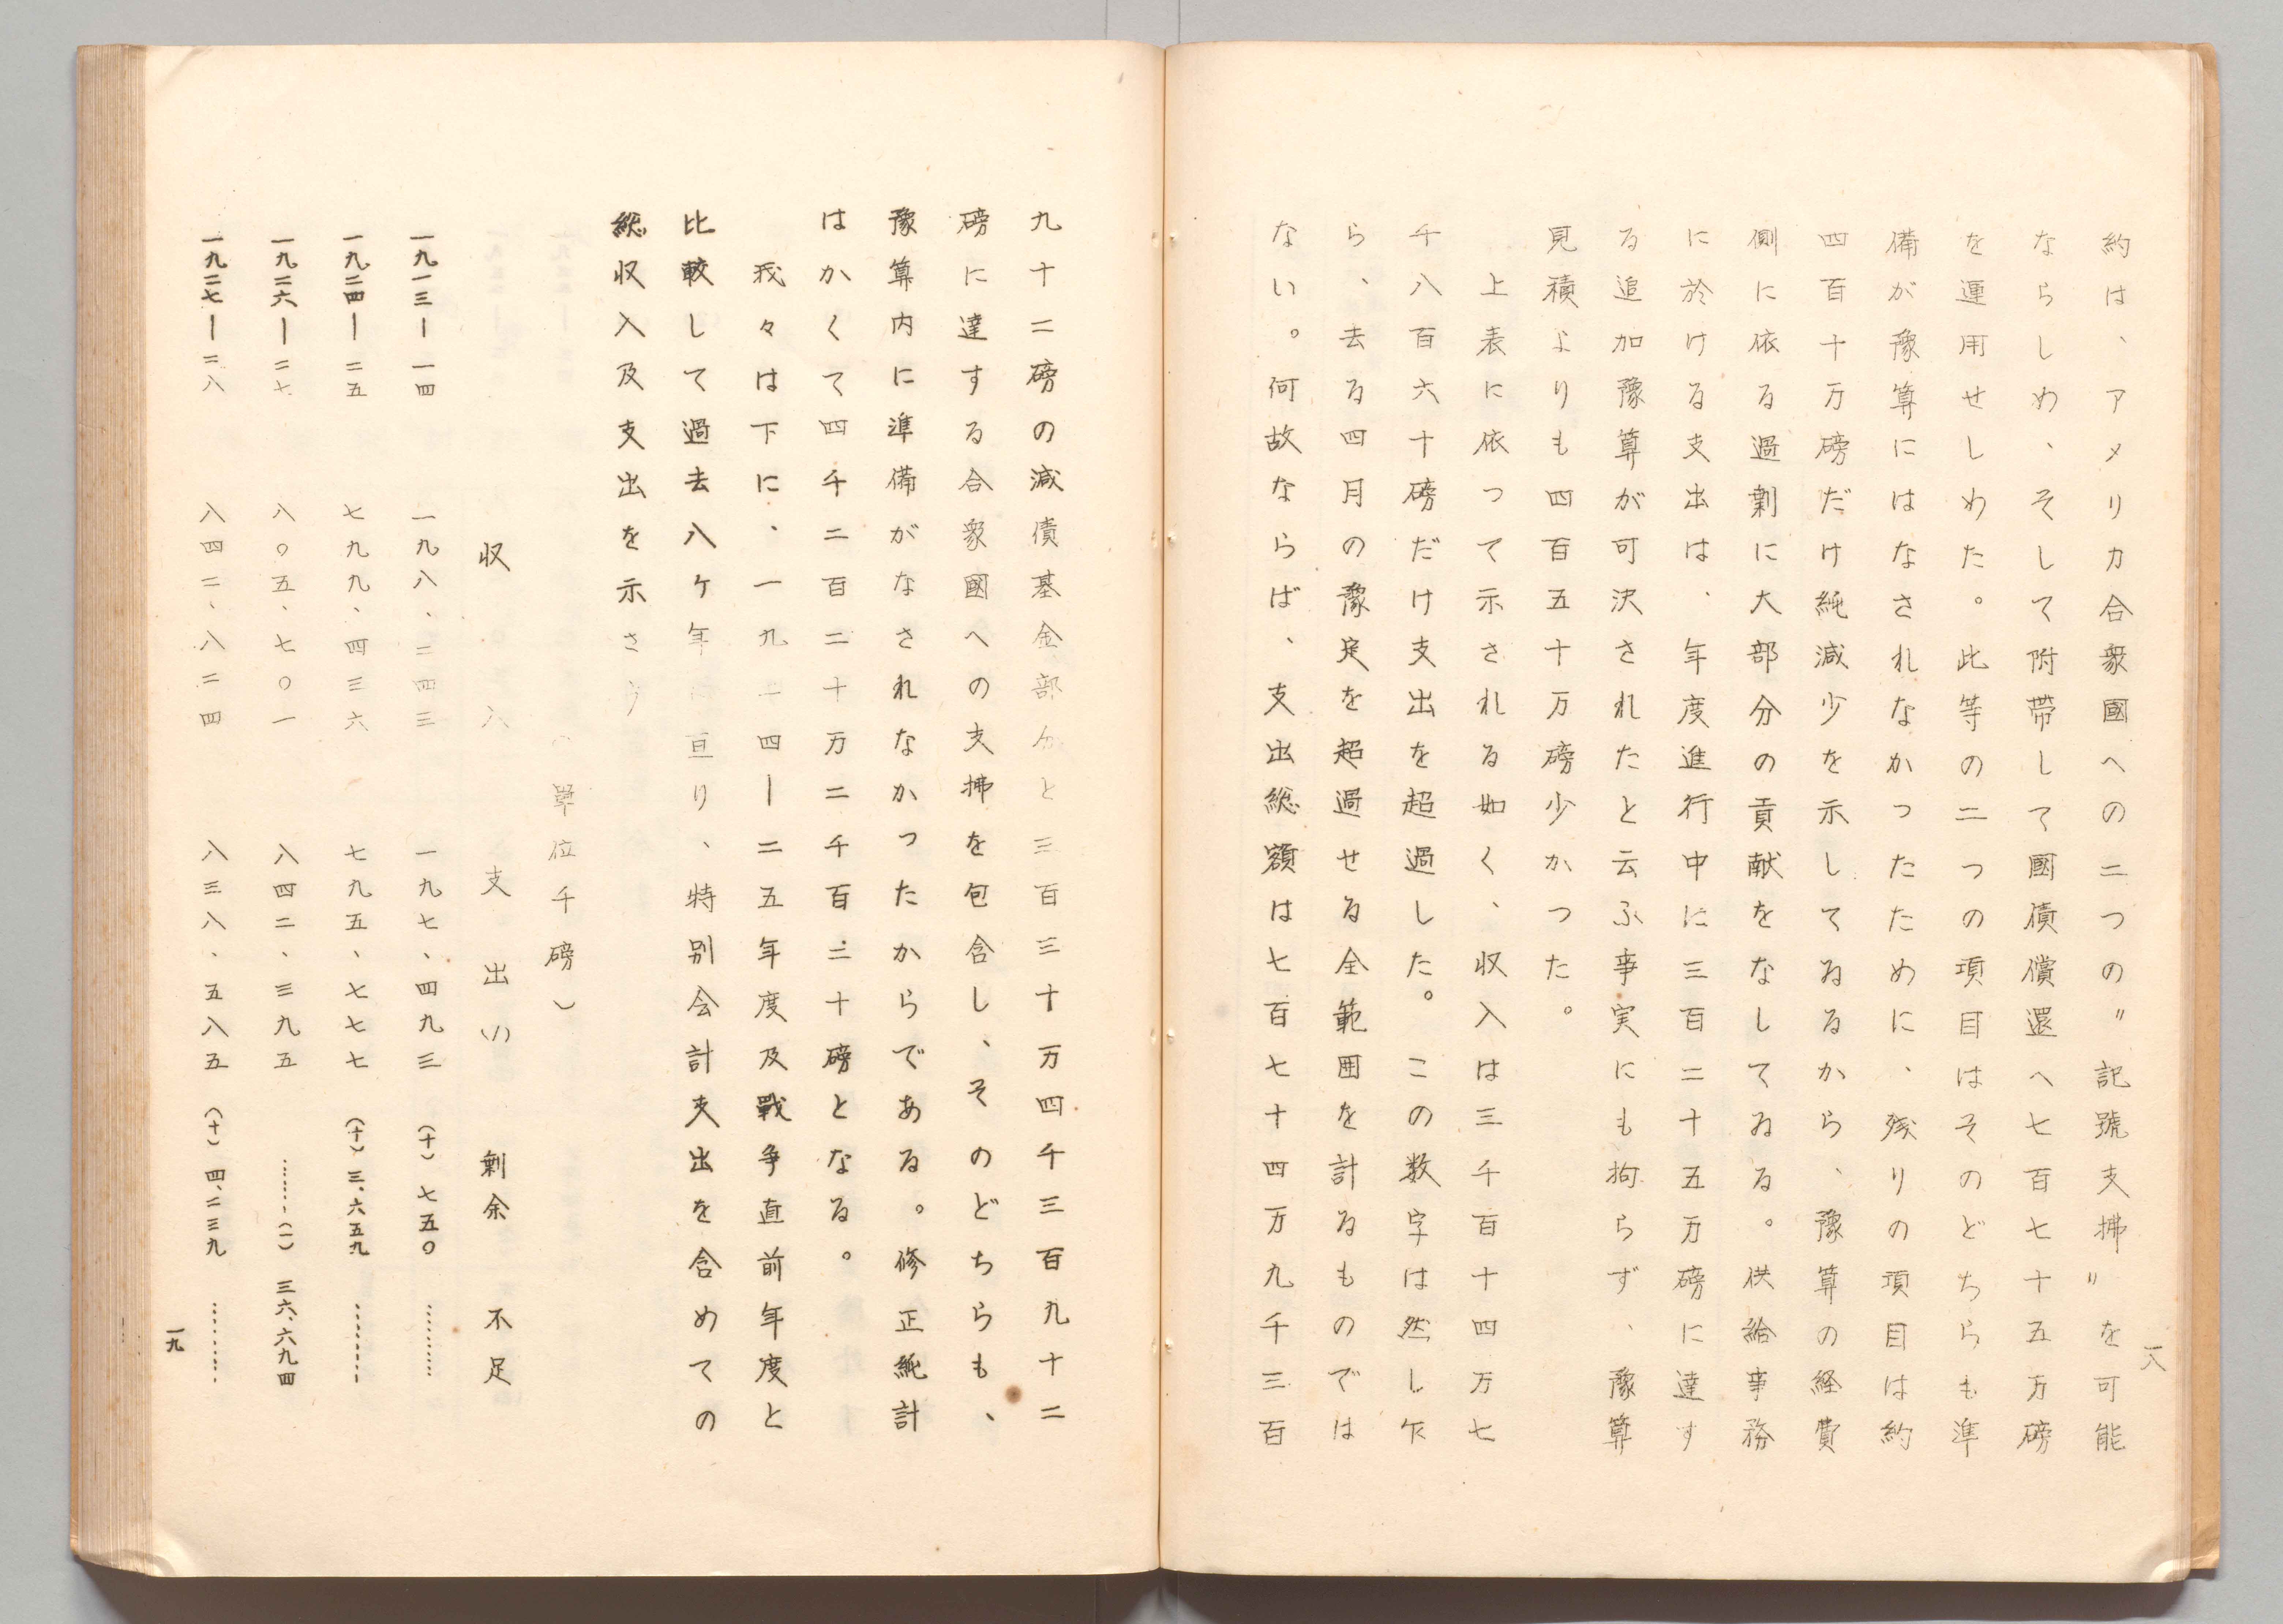 一八
約は、アメリカ合衆國への二つの〃記號支拂〃を可能
ならしめ、そして附帶して國債償還へ七百七十五万磅
を運用せしめた。此等の二つの項目はそのどちらも準
備が豫算にはなされなかつたために、残りの項目は約
四百十万磅だけ純減少を示してゐるから、豫算の経費
側に依る過剰に大部分の貢献をなしてゐる。供給事務
に於ける支出は、年度進行中に三百二十五万磅に達す
る追加豫算が可決されたと云ふ事実にも拘らず、豫算
見積よりも四百五十万磅少かつた。
上表に依つて示される如く、収入は三千百十四万七
千八百六十磅だけ支出を超過した。この数字は然し乍
ら、去る四月の豫定を超過せる全範囲を計るものでは
ない。何故ならば、支出総額は七百七十四万九千三百
九十二磅の減債基金部分と三百三十万四千三百九十二
磅に達する合衆國への支拂を包含し、そのどちらも、
豫算内に準備がなされなかつたからである。修正純計
はかくて四千二百二十万二千百三十磅となる。
我々は下に、一九二四ー二五年度及戰争直前年度と
比較して過去八ケ年亘り、特別会計支出を含めての
総収入及支出を示さう
（單位千磅）
収入　支出(1)　剰余　不足
一九一三ー一四　一九八、二四三　一九七、四九三　(十)七五〇　………
一九二四ー二五　七九九、四三六　七九五、七七七　(十)三、六五九　………
一九二六ー二七　八〇五、七〇一　八四二、三九五　……(一)三六、六九四
一九二七ー二八　八四二、八二四　八三八、五八五　(十)四、二三九　………
一九